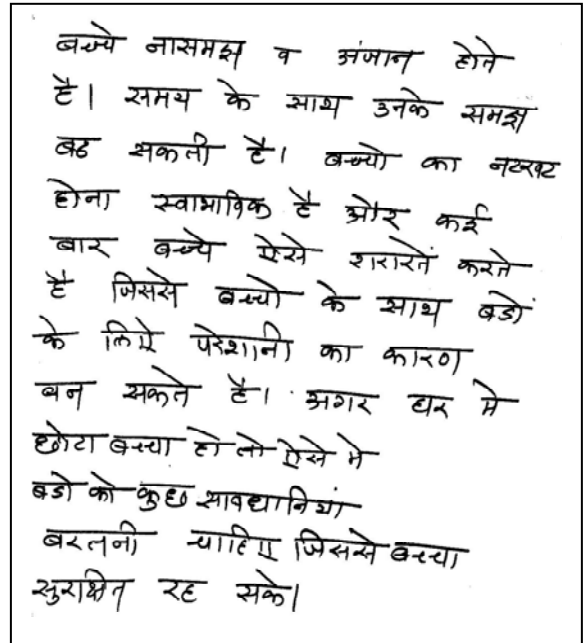 बच्चे नासमझ व अंजान होते
है। समय के साथ उनके समझ
बढ सकती है। बच्चो का नटखट
होना स्वाभाविक है और कई
बार बच्चे ऐसे शरारतें करते
है जिससे बच्चो के साथ बडों
के लिऐ परेशानी का कारण
बन सकते है। अगर घर मे
छोटा बच्चा हो तो ऐसे मे
बडो को कुछ सावधानियां
बरतनी चाहिए जिससे बच्चा
सुरक्षित रह सके।